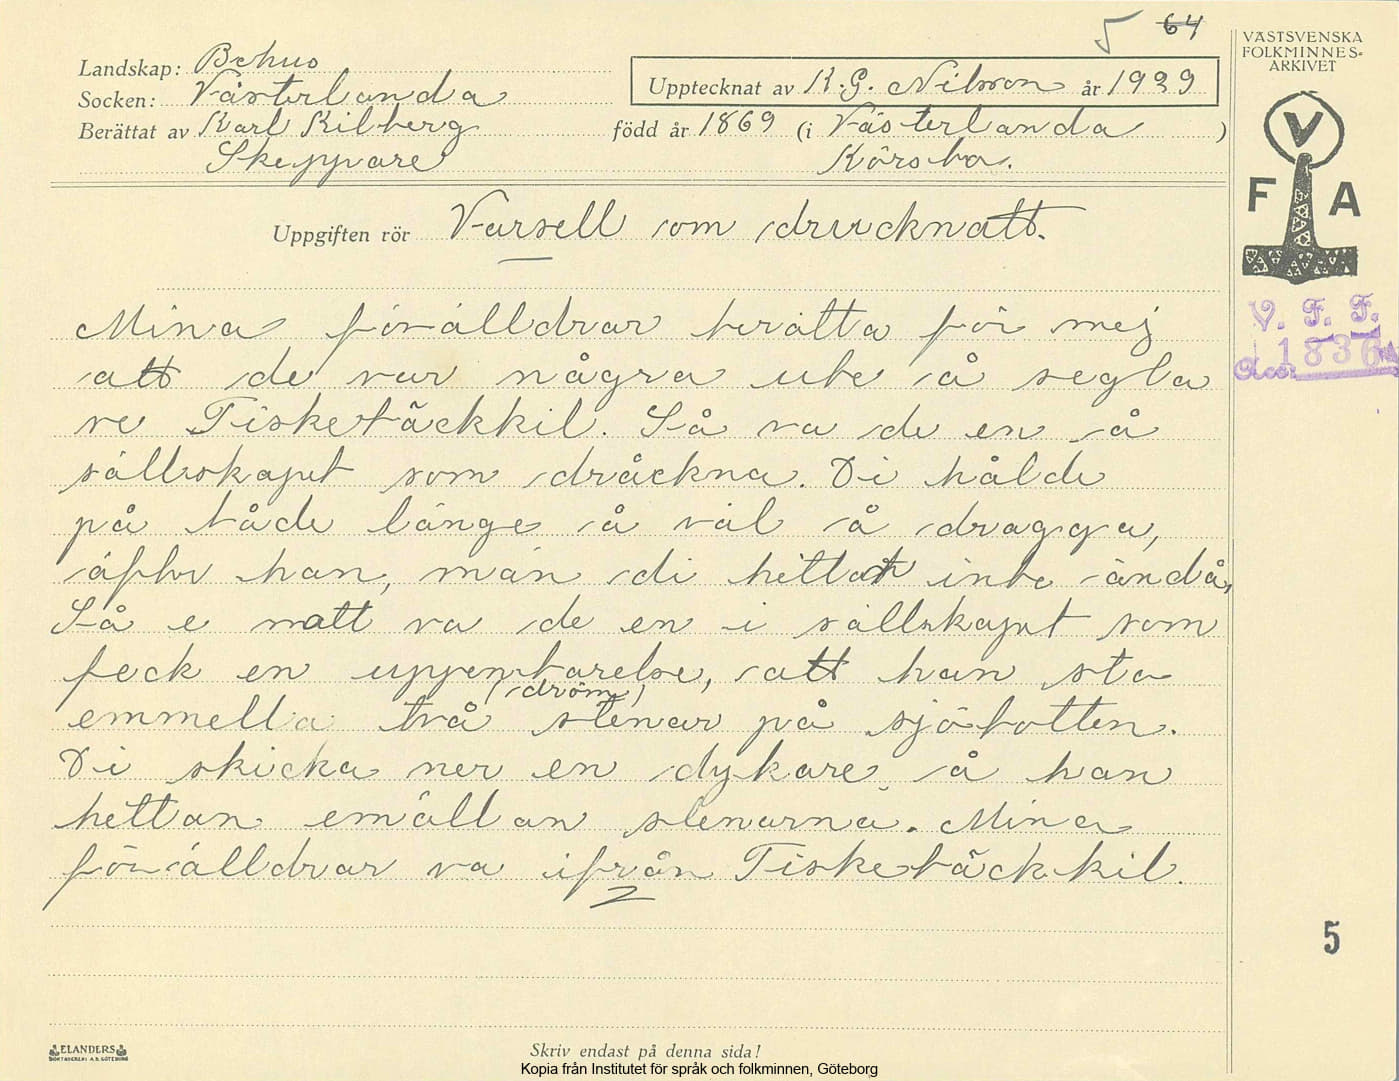 5 64
Landskap: Bohus
Socken: Västerlanda
Upptecknat av K.G. Nilsson år 1929
Berättat av Karl Kilberg född år 1869 (i Västerlanda )
Skeppare Körsba.
Uppgiften rör Varsell som drucknatt.
Mina förälldrar berätta för mej
att de var några ute å segla
ve Fiskebäckkil. Så va de en å
sällskapet som dråckna. Di hålde
på både länge å väl å dragga,
äfter han, män di hettat inte ändå,
Så e natt va de en i sällskapet som
feck en uppenbarelse, att han sto
(dröm)
emmella två stenar på sjöbotten.
Di skicka ner en dykare, å han
hettan emällan stenarna. Mina
förälldrar va ifrån Fiskebäckkil.
VÄSTSVENSKA
FOLKMINNES-
ARKIVET
V
F A
V. F. F.
Acc: 1836
5
ELANDERS
BOKTRYCKERI A.B. GÖTEBORG
Skriv endast på denna sida!
Kopia från Institutet för språk och folkminnen, Göteborg